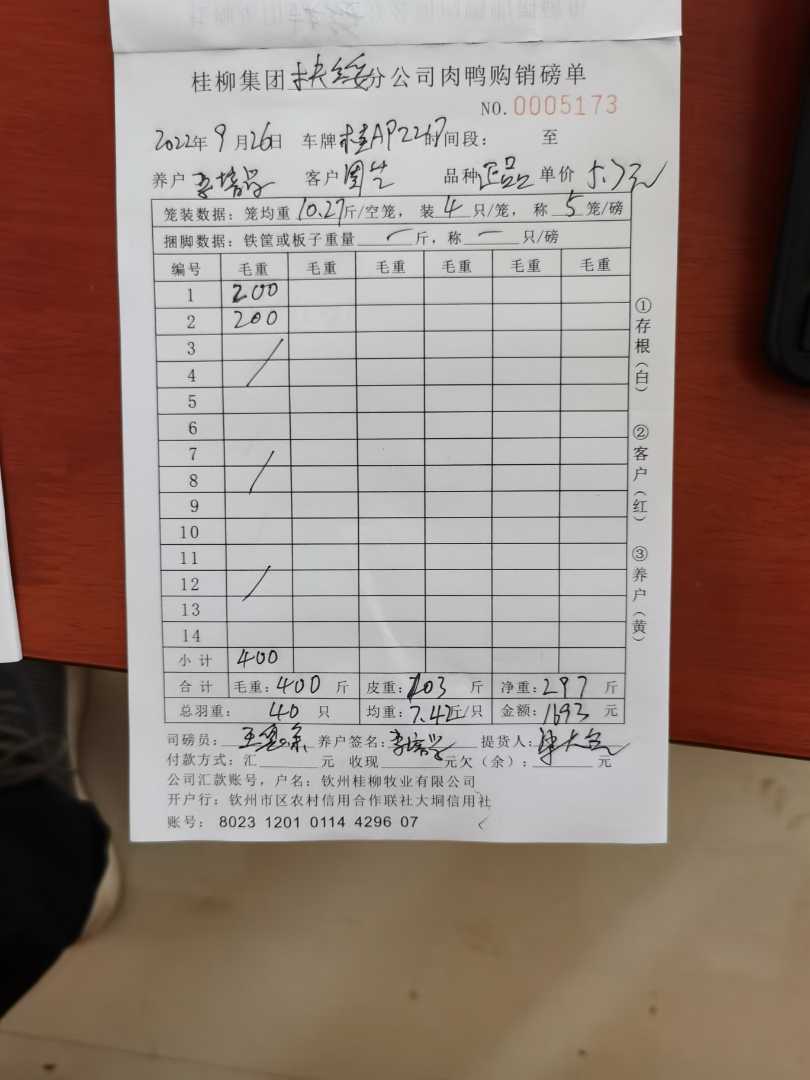 桂柳集团扶绥分公司肉鸭购销磅单
NO.0005173
2022年9月26日 车牌桂AP2267时间段： 至
养户李培兴 客户周生 品种正品 单价5.7元
笼装数据：笼均重10.27斤/空笼，装4只/笼，称5笼/磅
捆脚数据：铁筐或板子重量一斤，称一只/磅
编号 毛重 毛重 毛重 毛重 毛重 毛重
1 200
2 200
3
4
5
6
7
8
9
10
11
12
13
14
小计 400
合计 毛重：400斤 皮重：103斤 净重：297斤
总羽重：40只 均重：7.42斤/只 金额：1693元
司磅员： 养户签名：李培兴 提货人：
付款方式：汇 元 收现 元欠（余）： 元
公司汇款账号，户名：钦州桂柳牧业有限公司
开户行：钦州市区农村信用合作联社大垌信用社
账号：8023 1201 0114 4296 07
①存根（白）
②客户（红）
③养户（黄）